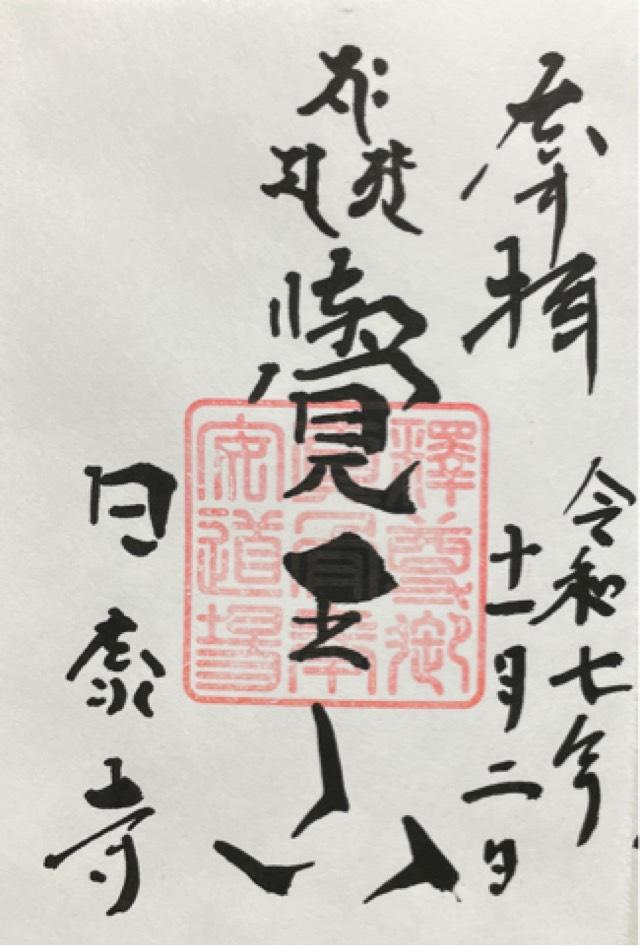 奉拝
令和七年
十一月二日
覺王山
日泰寺
釋尊御
奉
安道場